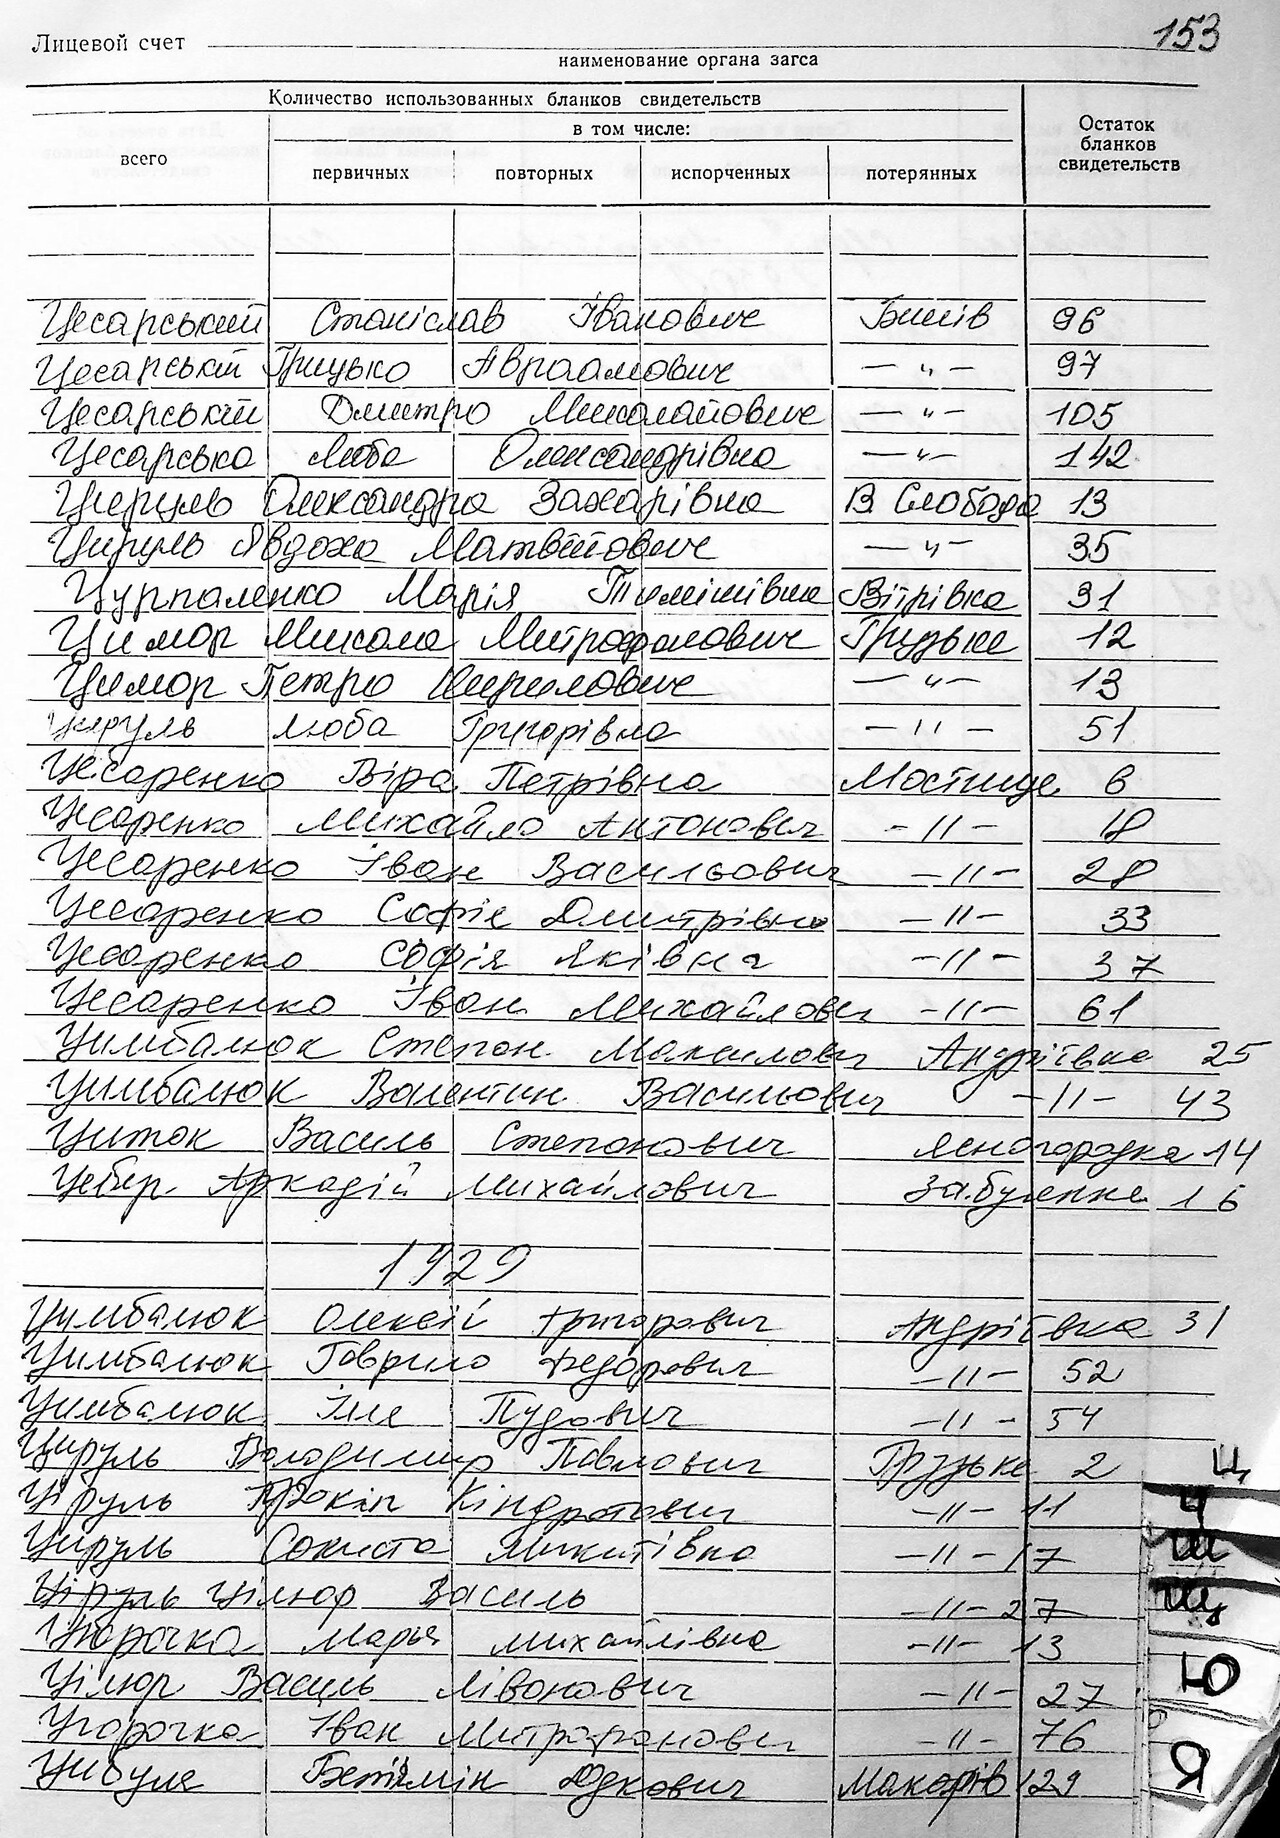 153
Лицевой счет
наименование органа загса
Количество использованных бланков свидетельств
в том числе:
всего
первичных
повторных
испорченных
потерянных
Остаток
бланков
свидетельств
Цесарський Станіслав Іванович 96
Цесарський Грицько Авраамович — " — 97
Цесарський Дмитро Миколайович — " — 105
Цесарська Люба Олександрівна — " — 142
Олександра Захарівна В. Слобода 13
Цируль Явдоха Матвійович — " — 35
Марія Вітрівка 31
Цимор Микола Митрофанович Грузьке 12
Цимор Петро Кирилович — " — 13
Цируль Люба Григорівна — " — 51
Цесаренко Віра Петрівна Мостище 6
Цесаренко Михайло Антонович — " — 18
Цесаренко Іван Васильович — " — 28
Цесаренко Софія Дмитрівна — " — 33
Цесаренко Софія Яківна — " — 37
Цесаренко Іван Михайлович — " — 61
Цимбалюк Степан Макилович Андріївка 25
Цимбалюк Валентин Васильович — " — 43
Циток Василь Степанович Ясногородка 14
Аркадій Михайлович 16
1929
Цимбалюк Олексій Григорович Андріївка 31
Цимбалюк Гаврило Федорович — " — 52
Цимбалюк Ілля Пудович — " — 54
Цируль Володимир Павлович Грузьке 2
Ціруль Прокіп Кіндратович — " — 11
Цируль Микитівна — " — 17
Ціруль Цілюр Василь — " — 27
Марья Михайлівна — " — 13
Цілюр Василь Лівонович — " — 27
Іван Митрофанович — " — 76
Цибуля Юдкович Макарів 129
Ц
Ч
Ш
Щ
Ю
Я